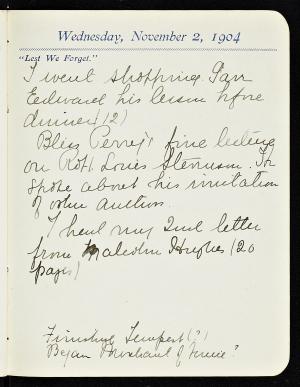 Wednesday, November 2, 1904
"Lest We Forget."
I went shopping. Gave
Edward his lesson before
dinner (2)
Bliss Perry's fine lecture
on Robt. Louis Stevenson. He
spoke about his imitation
of other authors.
I had my 2nd letter
from Malcolm Hughes (20
pages)
Finished Tempest (?)
Began Merchant of Venice?